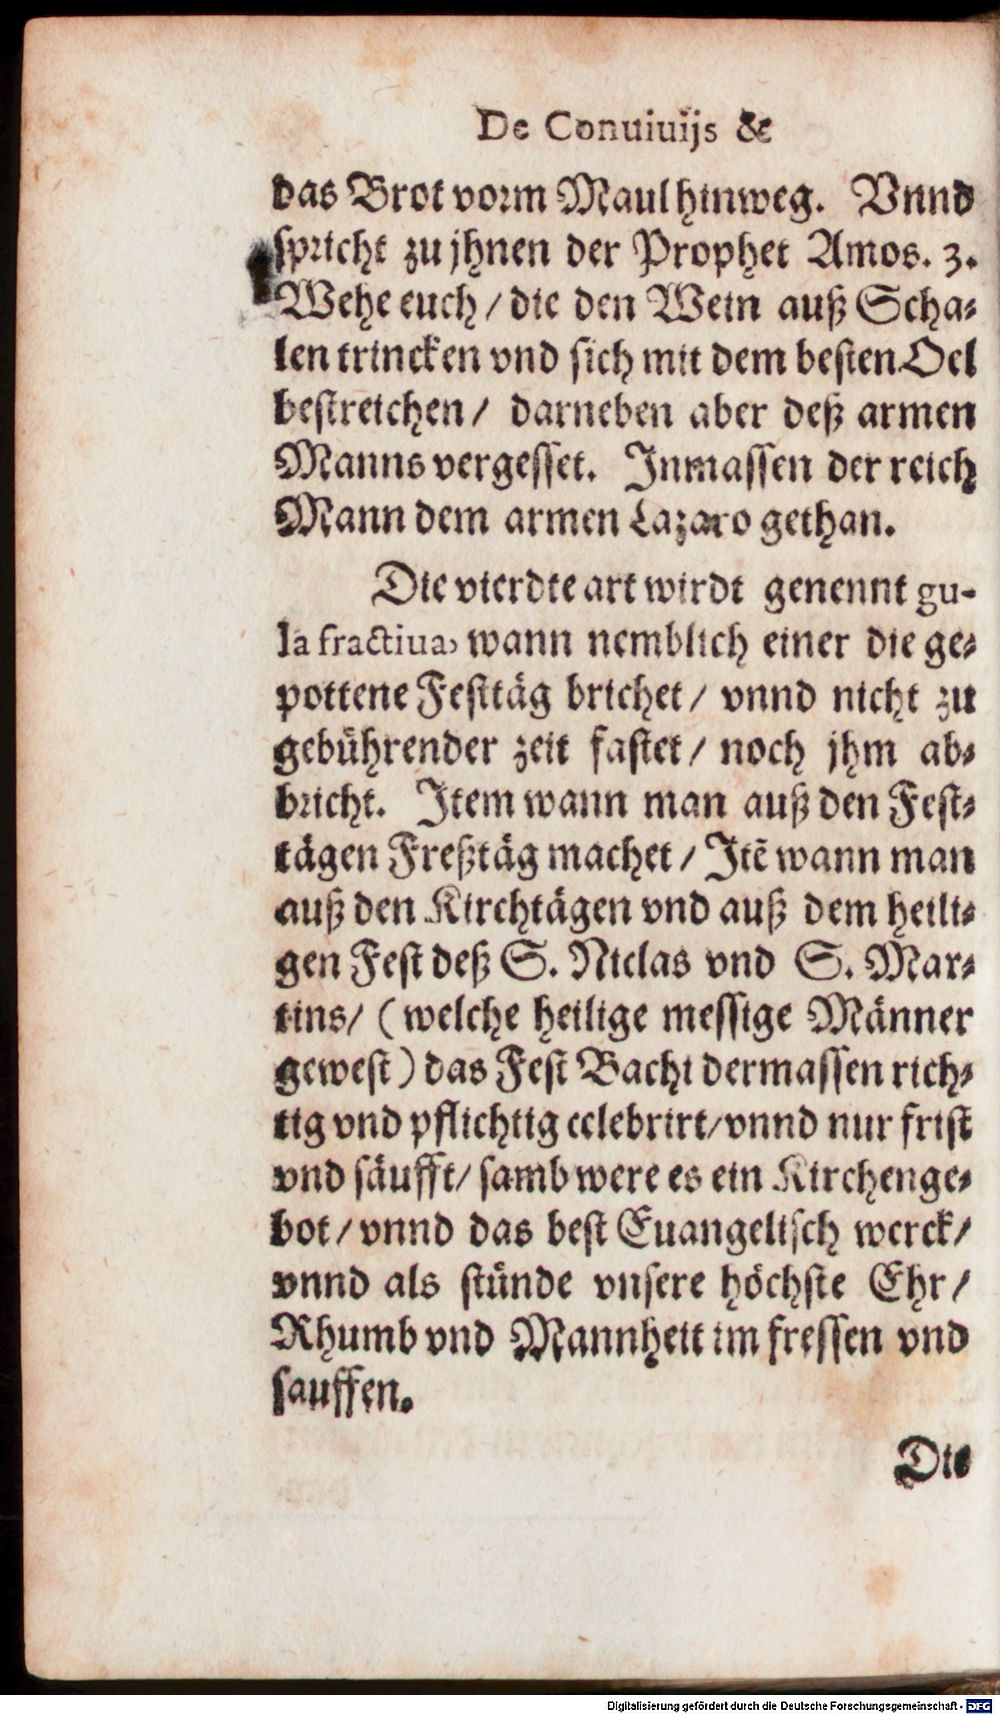 De Conuiuijs &
das Brot vorm Maul hinweg. Vnnd
spricht zu jhnen der Prophet Amos. 3.
Wehe euch / die den Wein auß Scha⸗
len trincken vnd sich mit dem besten Oel
bestreichen / darneben aber deß armen
Manns vergesset. Inmassen der reich
Mann dem armen Lazaro gethan.
Die vierdte art wirdt genennt gu-
la fractiua, wann nemblich einer die ge⸗
pottene Festtäg brichet / vnnd nicht zu
gebührender zeit fastet / noch jhm ab⸗
bricht. Item wann man auß den Fest⸗
tägen Freßtäg machet / Itē wann man
auß den Kirchtägen vnd auß dem heili⸗
gen Fest deß S. Niclas vnd S. Mar⸗
tins / (welche heilige messige Männer
gewest) das Fest Bachi dermassen rich⸗
tig vnd pflichtig celebrirt / vnnd nur frist
vnd säufft / samb were es ein Kirchenge⸗
bot / vnnd das best Euangelisch werck /
vnnd als stünde vnsere höchste Ehr /
Rhumb vnd Mannheit im fressen vnd
sauffen.
Die
Digitalisierung gefördert durch die Deutsche Forschungsgemeinschaft - DFG